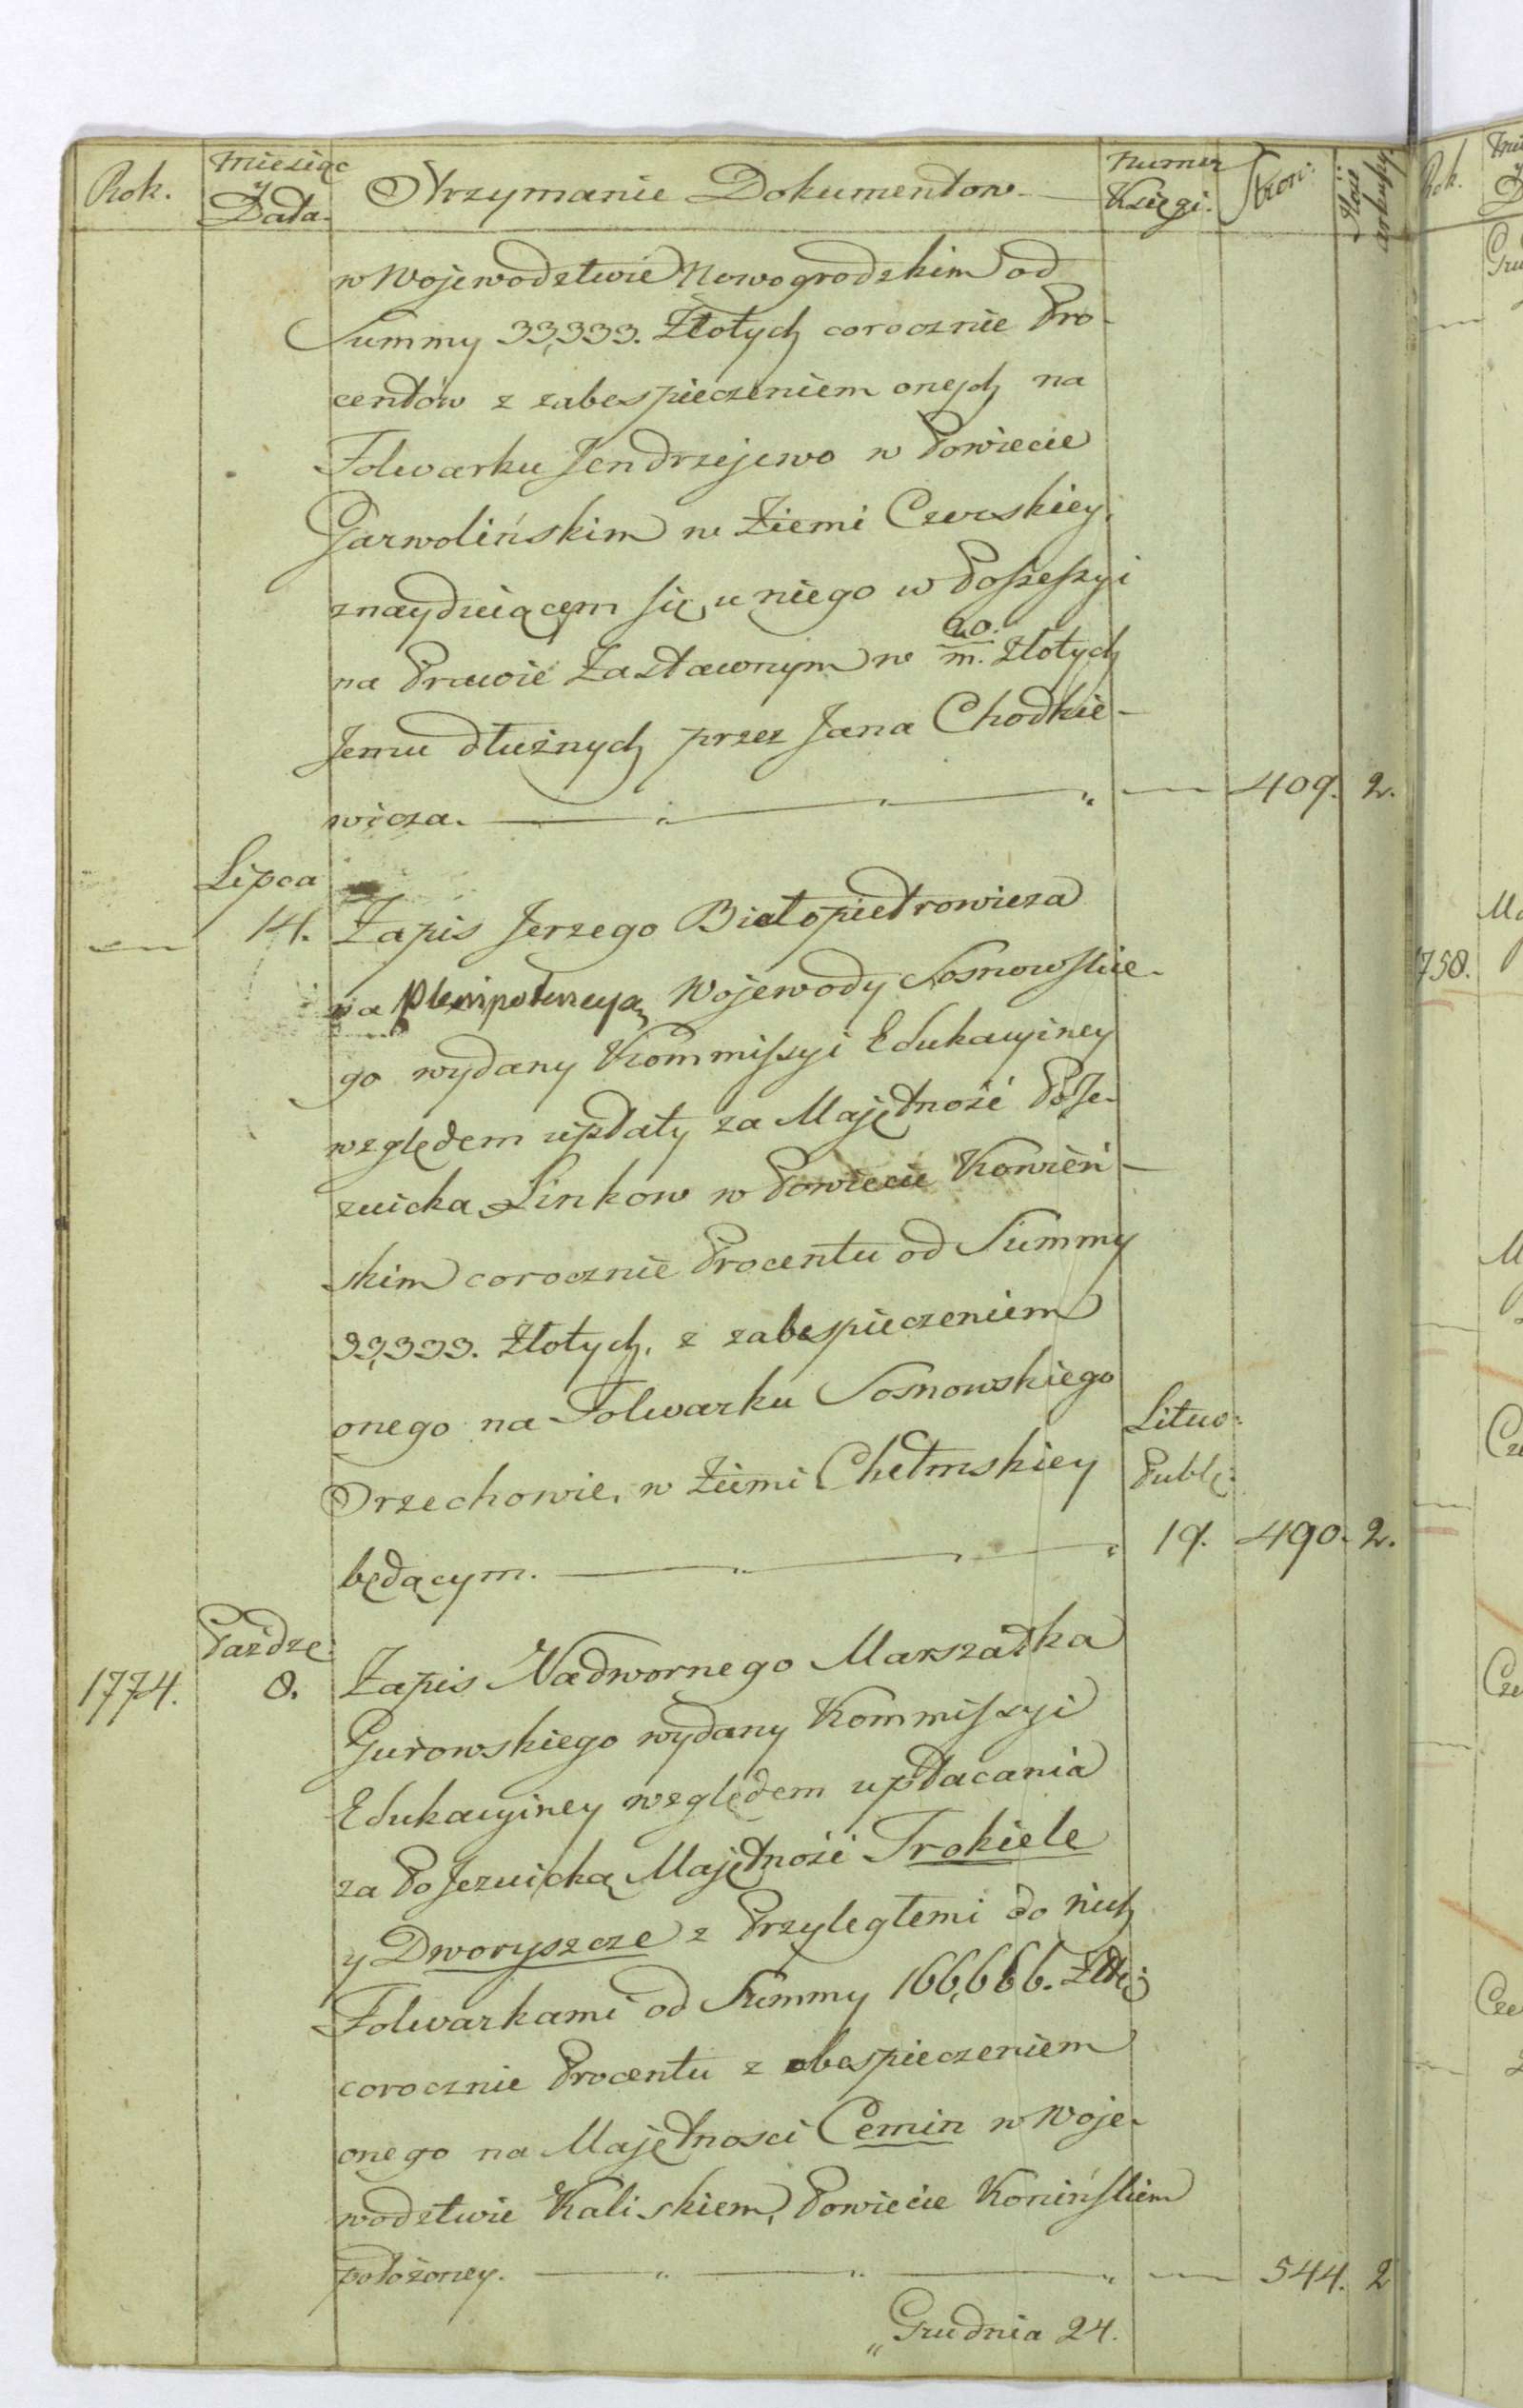 Rok. Miesiąc y Data. Otrzymanie Dokumentow. Numer Księgi. Stron: Ilość arkuszy.
w Wojewodztwie Nowogrodzkim od
Summy 33,333. Złotych corocznie Pro-
centów z zabespieczeniem onych na
Folwarku Jendrzejewo w Powiecie
Garwolińskim w Ziemi Czerskiey,
znayduiącem się u niego w Possessyi
na Prawie Zastawnym w 20./m. Złotych
Jemu dłużnych przez Jana Chodkie-
wicza. 409. 2.
Lipca
14. Zapis Jerzego Białopiotrowicza
na Plenipotencyą Wojewody Sosnowskie-
go wydany Kommissyi Edukacyiney
względem upłaty za Majętność PoJe-
zuicka Linkow w Powiecie Kowień-
skim corocznie Procentu od Summy
33,333. Złotych, z zabespieczeniem
onego na Folwarku Sosnowskiego
Orzechowie, w Ziemi Chełmskiey
Lituo: Publ:
będącym. 19. 490. 2.
Paźdze:
1774. 8. Zapis Nadwornego Marszałka
Gurowskiego wydany Kommissyi
Edukacyiney względem upłacania
za PoJezuicką Majętność Trokiele
y Dworyszcze z Przyległemi do nich
Folwarkami od Summy 166,666. Złł:
corocznie Procentu z obespieczeniem
onego na Majętnosci Cemin w Woje-
wodztwie Kaliskiem, Powiecie Konińskiem
położoney. 544. 2
„Grudnia 24.